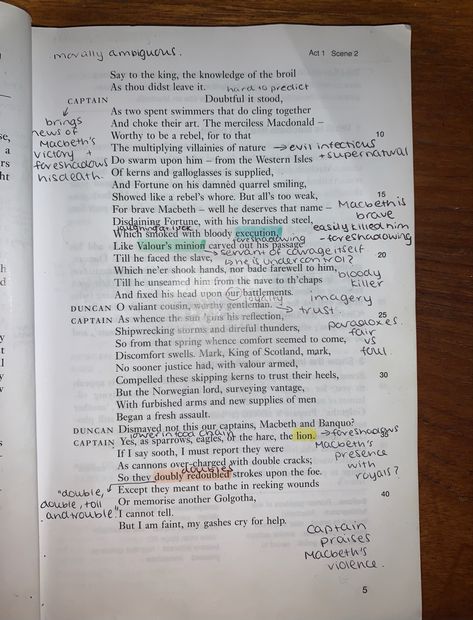 morally ambiguous.
Act 1 Scene 2
Say to the king, the knowledge of the broil
As thou didst leave it.
hard to predict
CAPTAIN Doubtful it stood,
As two spent swimmers that do cling together
And choke their art. The merciless Macdonald –
Worthy to be a rebel, for to that 10
The multiplying villainies of nature → evil infectious
+ supernatural
Do swarm upon him – from the Western Isles
Of kerns and galloglasses is supplied,
And Fortune on his damnèd quarrel smiling,
Showed like a rebel's whore. But all's too weak, 15
For brave Macbeth – well he deserves that name –
Disdaining Fortune, with his brandished steel,
Which smoked with bloody execution,
Like Valour's minion carved out his passage
Till he faced the slave, 20
Which ne'er shook hands, nor bade farewell to him,
Till he unseamed him from the nave to th'chaps
And fixed his head upon our battlements.
DUNCAN O valiant cousin, worthy gentleman.
CAPTAIN As whence the sun 'gins his reflection, 25
Shipwrecking storms and direful thunders,
So from that spring whence comfort seemed to come,
Discomfort swells. Mark, King of Scotland, mark,
No sooner justice had, with valour armed,
Compelled these skipping kerns to trust their heels, 30
But the Norwegian lord, surveying vantage,
With furbished arms and new supplies of men
Began a fresh assault.
DUNCAN Dismayed not this our captains, Macbeth and Banquo?
CAPTAIN Yes, as sparrows, eagles, or the hare, the lion. 35
If I say sooth, I must report they were
As cannons over-charged with double cracks;
So they doubly redoubled strokes upon the foe.
Except they meant to bathe in reeking wounds
Or memorise another Golgotha, 40
I cannot tell.
But I am faint, my gashes cry for help.
brings
news of
Macbeth's
victory +
foreshadows
his death.
Macbeth is
brave
easily killed him
- foreshadowing
laughing at luck
foreshadowing
→ servant of courage itself
↳ he is under control?
bloody
killer
loyalty
imagery
→ trust.
paradoxes
fair
vs
foul
lower in food chain
→ foreshadows
Macbeth's
presence
with
royals?
doubles
"double,
double, toil
and trouble"
Captain
praises
Macbeth's
violence.
5